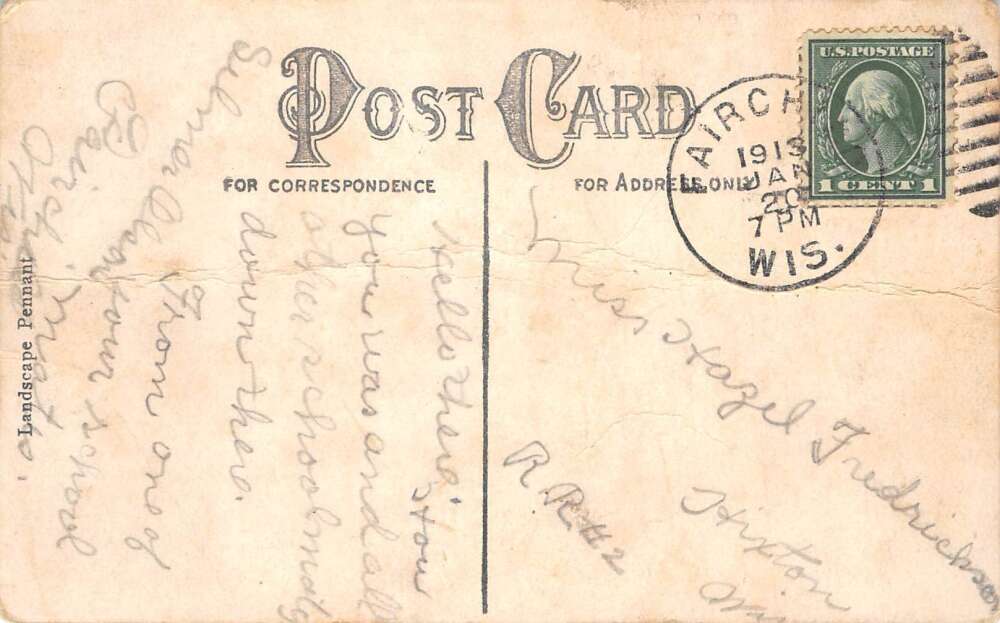 POST CARD
FOR CORRESPONDENCE
FOR ADDRESS ONLY
U.S. POSTAGE
1 CENT 1
FAIRCH
1913
JAN
20
7 PM
WIS.
Landscape Pennant
Hello there, How
you was and all
other school maits
down there.
From one of
your school
Maits.
Miss Hazel Fredrickson
Hixton
R R #2